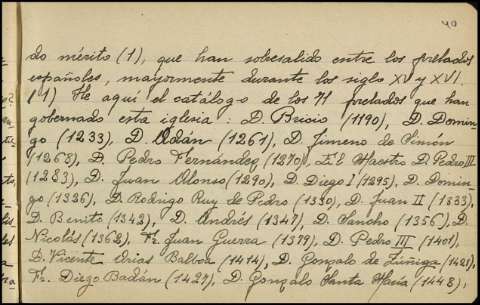 40
do mérito (1), que han sobresalido entre los prelados
españoles, mayormente durante los siglo XV y XVI.
(1) He aquí el catálogo de los 71 prelados que han
gobernado esta iglesia: D. Bricio (1190), D. Domin-
go (1233), D. Adán (1261), D. Jimeno de Simón
(1268), D. Pedro Fernández (1270), El Maestro D. Pedro III
(1283), D. Juan Alonso (1290), D. Diego I (1295), D. Domin-
go (1326), D. Rodrigo Ruy de Pedro (1330), D. Juan II (1533),
D. Benito (1342), D. Andrés (1347), D. Sancho (1356), D.
Nicolás (1362), Fr. Juan Guerra (1379), D. Pedro III (1401),
D. Vicente Arias Balboa (1414), D. Gonzalo de Zúñiga (1421),
Fr. Diego Badán (1427), D. Gonzalo Santa María (1448),